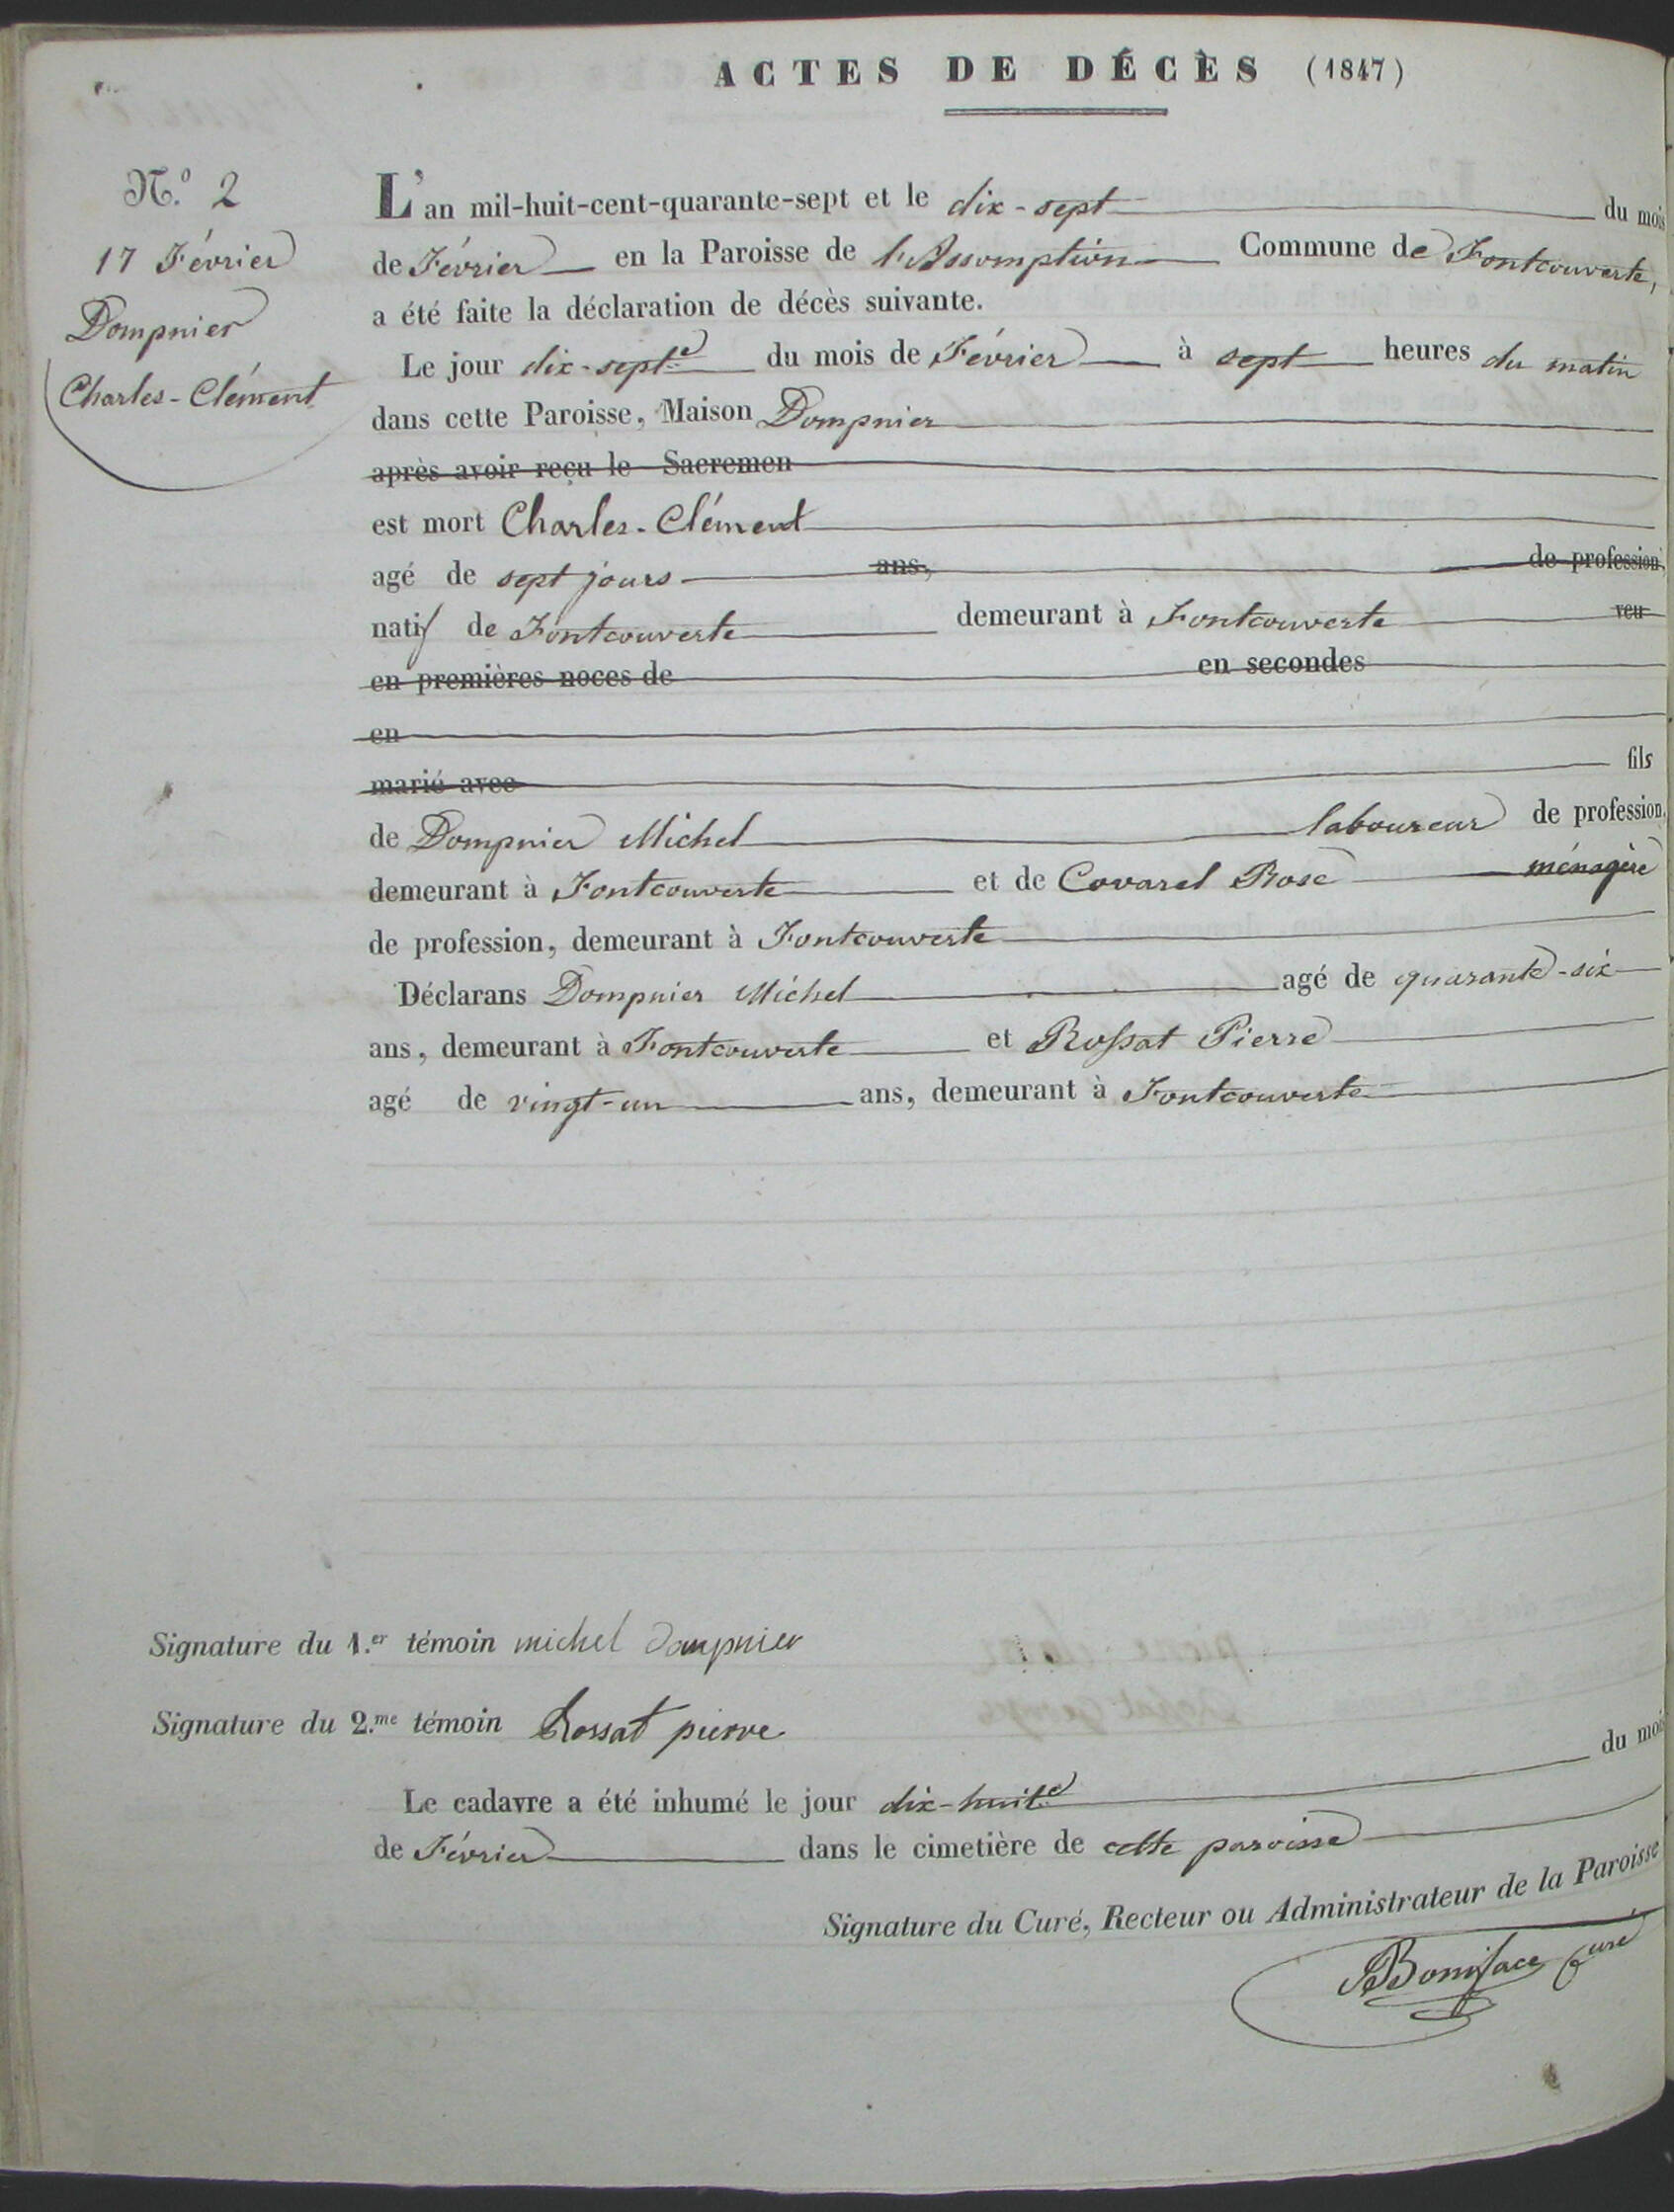 ACTES DE DÉCÈS (1847)
N.º 2
17 Février
Dompnier
Charles-Clément
L'an mil-huit-cent-quarante-sept et le dix-sept du mois
de Février en la Paroisse de l'Assomption Commune de Fontcouverte,
a été faite la déclaration de décès suivante.
Le jour dix-sept.e du mois de Février à sept heures du matin
dans cette Paroisse, Maison Dompnier
après avoir reçu le Sacremen
est mort Charles-Clément
agé de sept jours ans, de profession,
natif de Fontcouverte demeurant à Fontcouverte veu
en premières noces de en secondes
en
marié avec fils
de Dompnier Michel laboureur de profession,
demeurant à Fontcouverte et de Covarel Rose ménagère
de profession, demeurant à Fontcouverte
Déclarans Dompnier Michel agé de quarante-six
ans, demeurant à Fontcouverte et Rossat Pierre
agé de vingt-un ans, demeurant à Fontcouverte
Signature du 1.er témoin michel dompnier
Signature du 2.me témoin Rossat pierre
Le cadavre a été inhumé le jour dix-huit.e du mois
de Février dans le cimetière de cette paroisse
Signature du Curé, Recteur ou Administrateur de la Paroisse
Boniface Curé